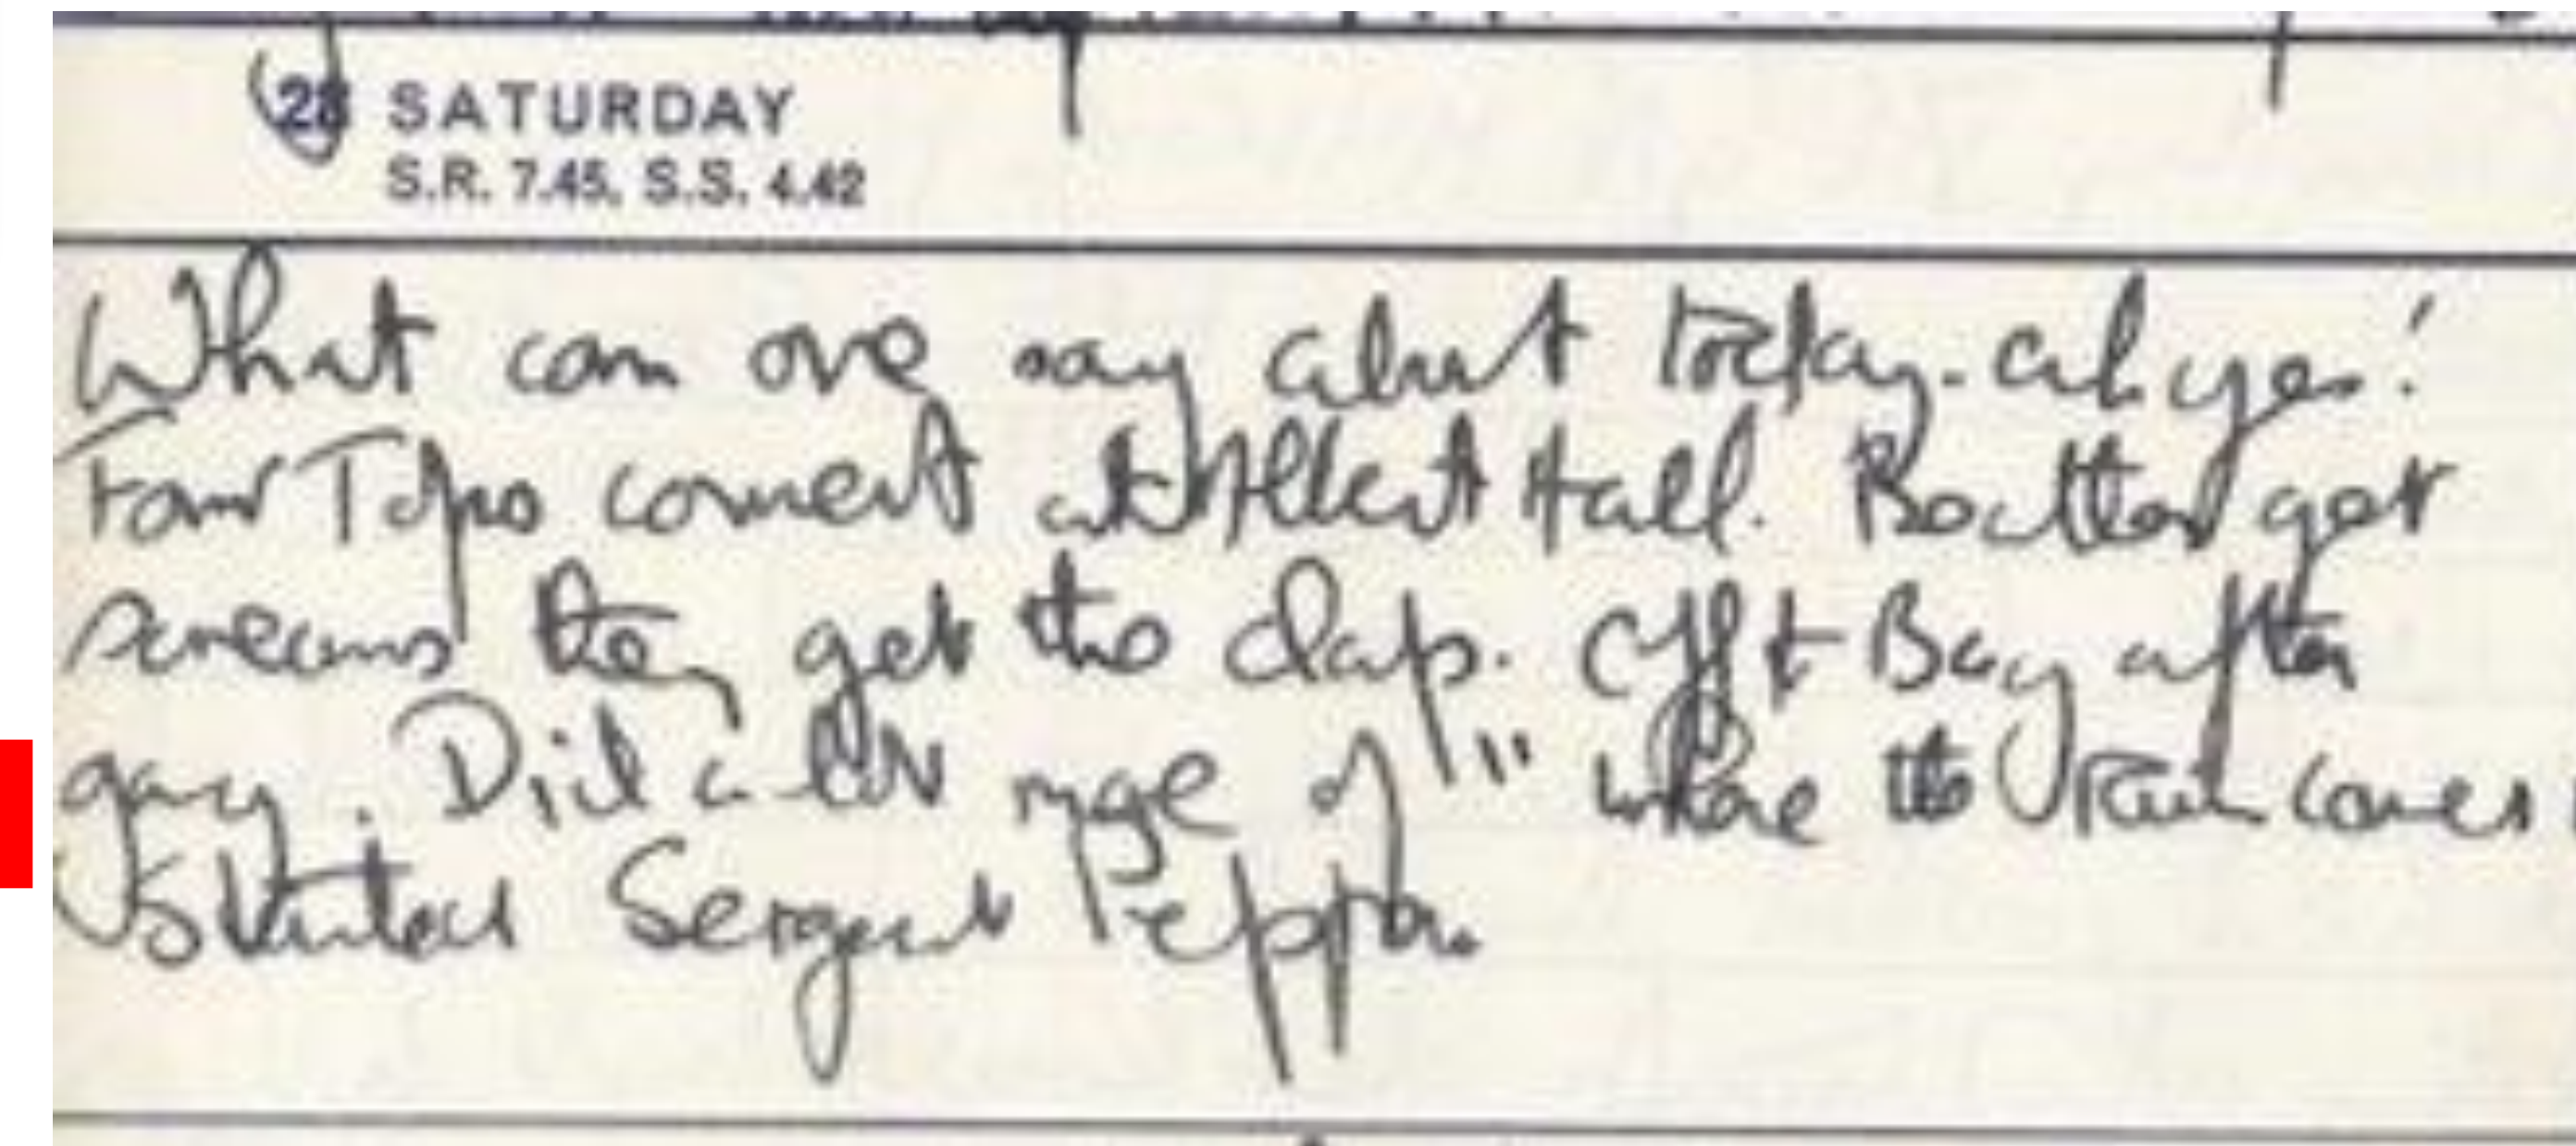 28 SATURDAY
S.R. 7.45, S.S. 4.42
What can one say about today - ah yes!
Four Tops concert at Albert Hall. Beatles get
screams they get the clap. Off to Bag after
gary. Did a lot more of " where the Rain comes
Started Sergent Pepper.